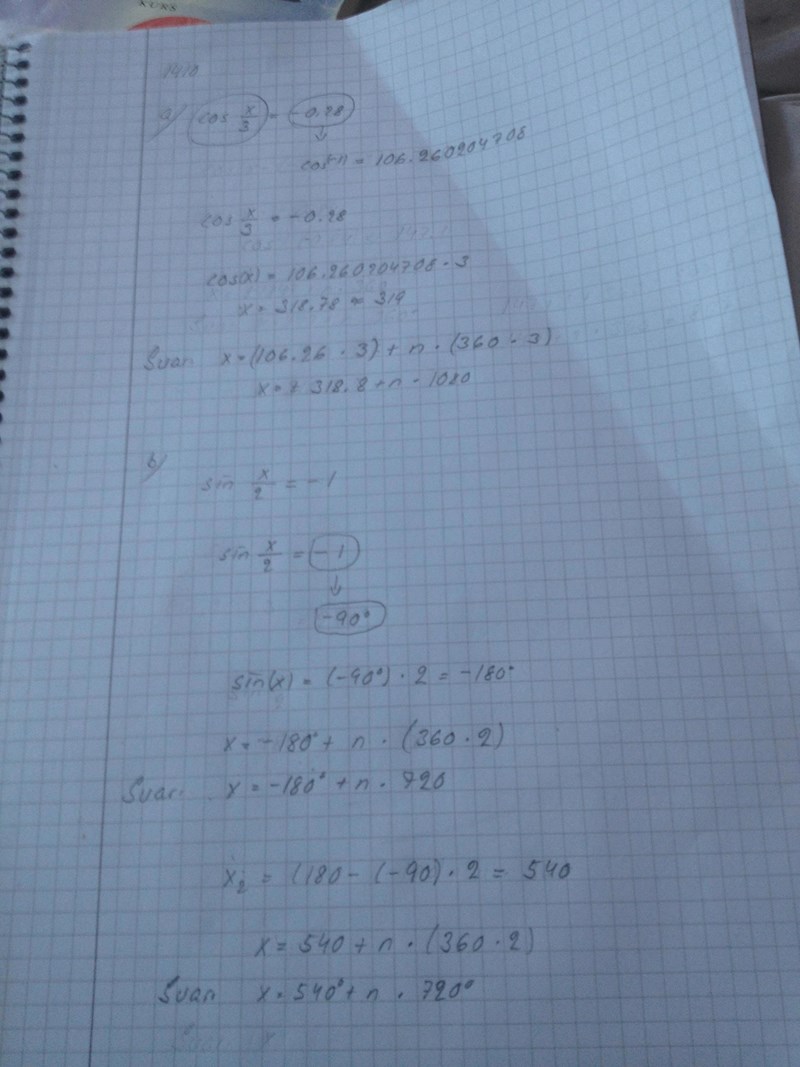 KURS
1410
a) cos x/3 = -0.28
↓
cos⁻¹ = 106.260204708
cos x/3 = -0.28
cos(x) = 106.260204708 · 3
x = 318.78 ≈ 319
Svar: x = (106.26 · 3) + n · (360 · 3)
x = ± 318.8 + n · 1080
b)
sin x/2 = -1
sin x/2 = -1
↓
-90°
sin(x) = (-90°) · 2 = -180°
x = -180° + n · (360 · 2)
Svar: x = -180° + n · 720
x₂ = (180 - (-90) · 2 = 540
x = 540 + n · (360 · 2)
Svar x = 540° + n · 720°